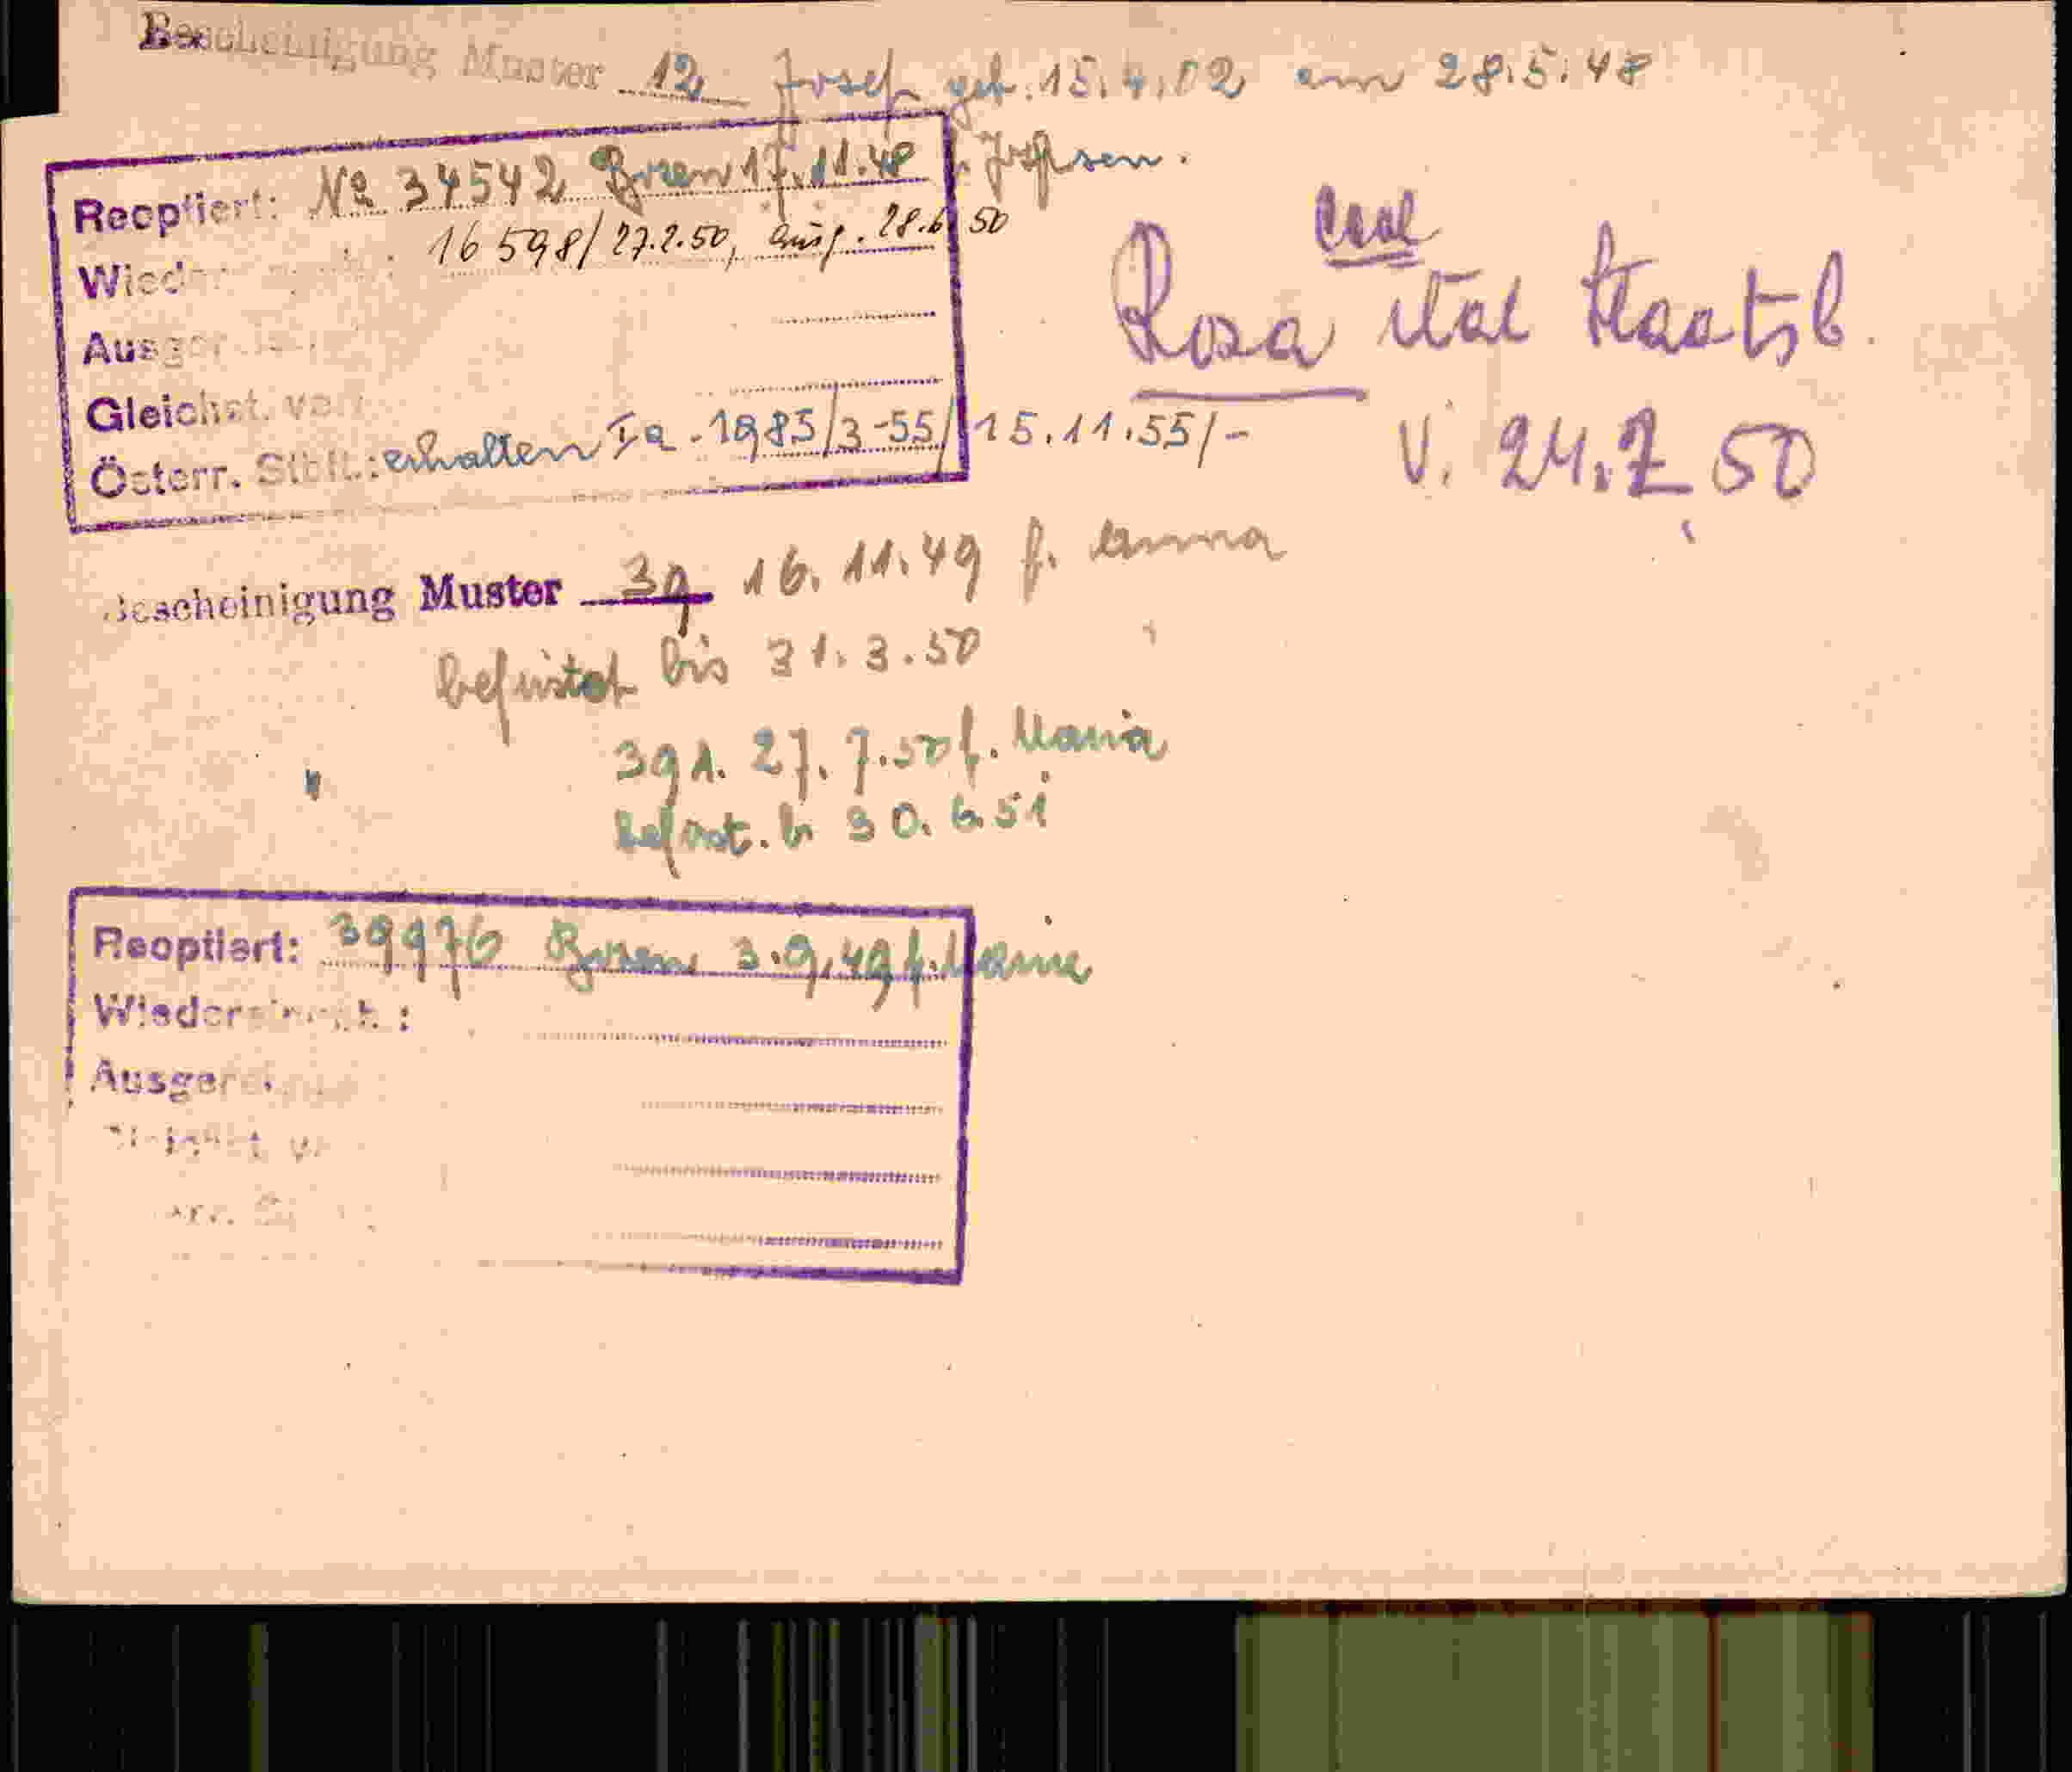 Bescheinigung Muster 12 Josef geb. 15.4.02 am 28.5.48
Reoptiert: No 34542 Bozen 17.11.48 f. Josefsen.
16598/27.2.50, ausg. 28.6.50
Wieder
Ausger
Gleichst. v
Österr. Stbft.: erhalten Ia-1985/3-55/ 15.11.55/-
Rosa ital Staatsb.
V. 24.7.50
Bescheinigung Muster 3g 16.11.49 f. Anna
befristet bis 31.3.50
3g 1. 27.7.50 f. Maria
befrist. b. 30.6.51
Reoptiert: 39976 Bozen 3.9.49 f. Maria
Wieder
Ausger